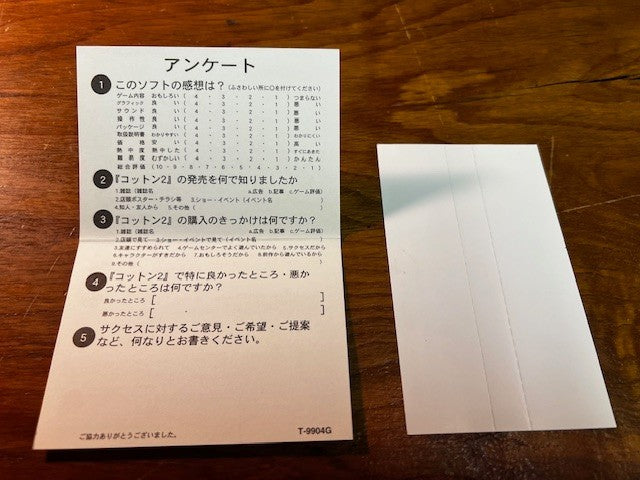 アンケート
1 このソフトの感想は？(ふさわしい所に○を付けてください)
ゲーム内容 おもしろい ( 4 ・ 3 ・ 2 ・ 1 ) つまらない
グラフィック 良い ( 4 ・ 3 ・ 2 ・ 1 ) 悪い
サウンド 良い ( 4 ・ 3 ・ 2 ・ 1 ) 悪い
操作性 良い ( 4 ・ 3 ・ 2 ・ 1 ) 悪い
パッケージ 良い ( 4 ・ 3 ・ 2 ・ 1 ) 悪い
取扱説明書 わかりやすい ( 4 ・ 3 ・ 2 ・ 1 ) わかりにくい
価格 安い ( 4 ・ 3 ・ 2 ・ 1 ) 高い
熱中度 熱中した ( 4 ・ 3 ・ 2 ・ 1 ) すぐにあきた
難易度 むずかしい ( 4 ・ 3 ・ 2 ・ 1 ) かんたん
総合評価 (10・9・8・7・6・5・4・3・2・1)
2 『コットン2』の発売を何で知りましたか
1.雑誌 (雑誌名 a.広告 b.記事 c.ゲーム評価)
2.店頭ポスター・チラシ等 3.ショー・イベント (イベント名 )
4.知人・友人から 5.その他 ( )
3 『コットン2』の購入のきっかけは何ですか？
1.雑誌 (雑誌名 a.広告 b.記事 c.ゲーム評価)
2.店頭で見て 3.ショー・イベントで見て (イベント名 )
3.友達にすすめられて 4.ゲームセンターでよく遊んでいたから 5.サクセスだから
6.キャラクターがすきだから 7.おもしろそうだから 8.前作から遊んでいるから
9.その他 ( )
4 『コットン2』で特に良かったところ・悪か
ったところは何ですか？
良かったところ [ ]
悪かったところ [ ]
5 サクセスに対するご意見・ご希望・ご提案
など、何なりとお書きください。
ご協力ありがとうございました。
T-9904G